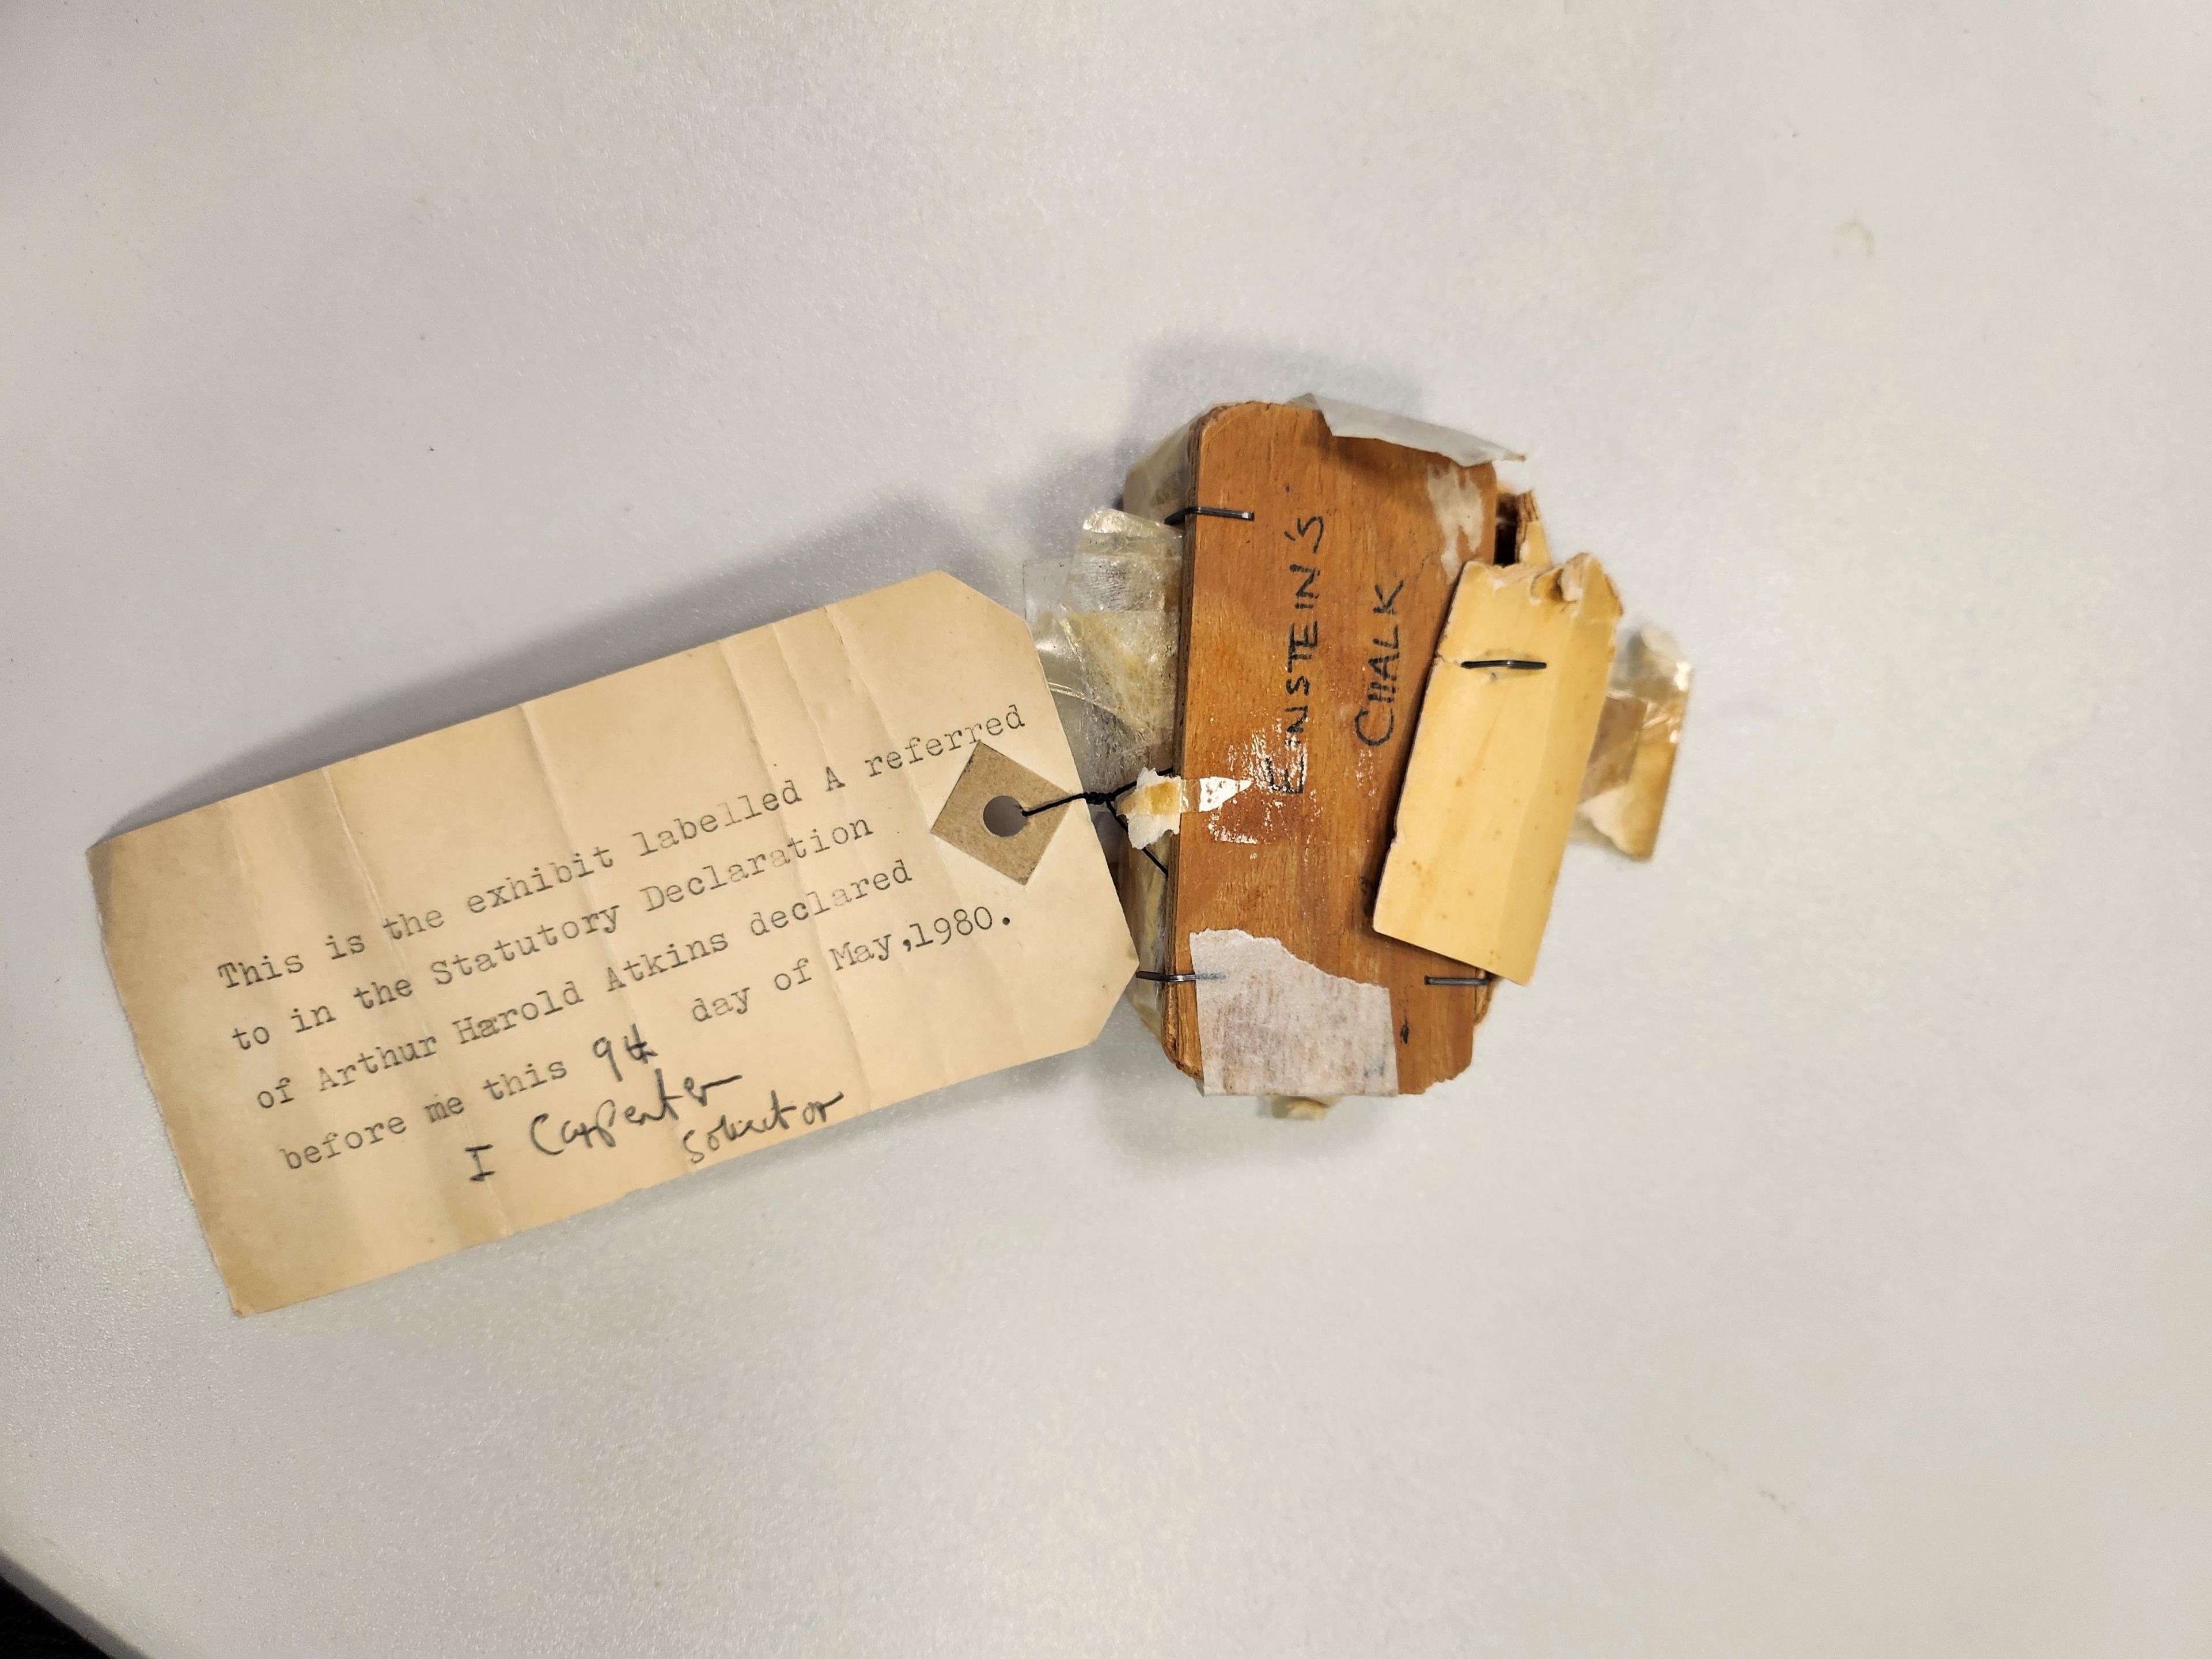 This is the exhibit labelled A referred
to in the Statutory Declaration
of Arthur Harold Atkins declared
before me this 9th day of May,1980.
I Carpenter
Solicitor
EINSTEIN'S
CHALK